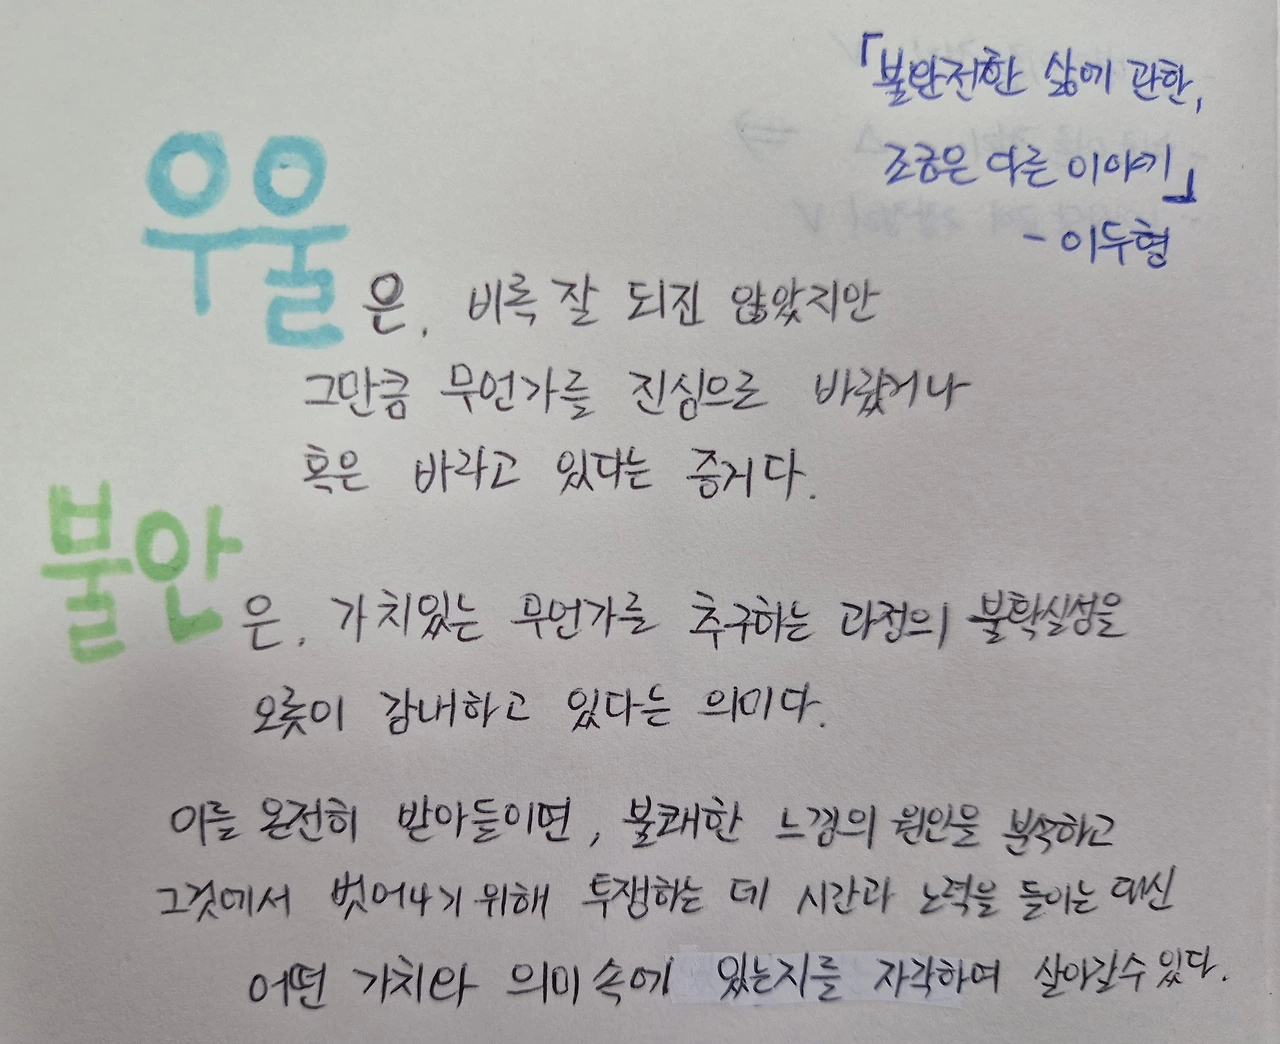 「불완전한 삶에 관한,
조금은 다른 이야기」
- 이두형
우울은, 비록 잘 되진 않았지만
그만큼 무언가를 진심으로 바랐거나
혹은 바라고 있다는 증거다.
불안은, 가치있는 무언가를 추구하는 과정의 불확실성을
오롯이 감내하고 있다는 의미다.
이를 온전히 받아들이면, 불쾌한 느낌의 원인을 분석하고
그것에서 벗어나기 위해 투쟁하는 데 시간과 노력을 들이는 대신
어떤 가치와 의미 속에 있는지를 자각하며 살아갈수 있다.